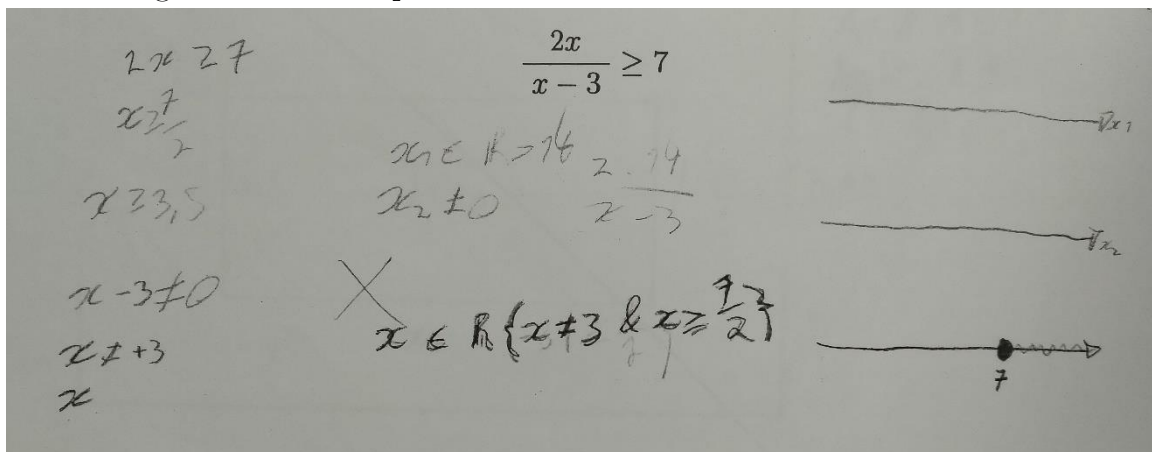 2x ≥ 7
x ≥ 7/2
x ≥ 3,5
x - 3 ≠ 0
x ≠ +3
x
2x / (x - 3) ≥ 7
x₁ ∈ ℝ >
x₂ ≠ 0
x - 3
x ∈ ℝ{x ≠ 3 & x ≥ 7/2}
x₁
x₂
7